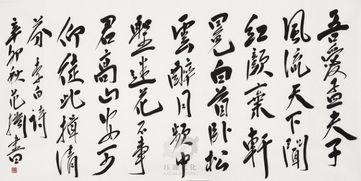 吾愛孟夫子
風流天下聞
紅顏棄軒
冕白首臥松
雲醉月頻中
聖迷花不事
君高山安可
仰徒此揖清
芬李白詩
辛卯秋范書